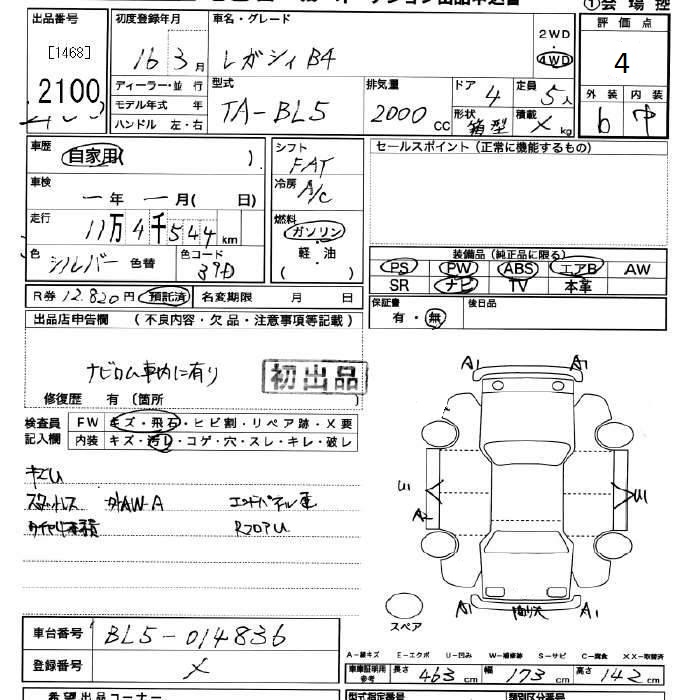 ①会場控
出品番号
[1468]
2100
初度登録年月
16 3月
ディーラー・並 行
モデル年式 年
ハンドル 左・右
車名・グレード
レガシィ B4
2WD
4WD
型式
TA-BL5
排気量
2000 CC
ドア 4
定員 5人
形状 箱型
積載 × kg
評価点
4
外装 内装
b 中
車歴
自家用( )
車検
一年一月( 日)
走行
11万4千544km
色
シルバー 色替
色コード
39D
シフト
FAT
冷房 A/C
燃料
ガソリン
軽・油
( )
セールスポイント(正常に機能するもの)
装備品(純正品に限る)
PS PW ABS エアB AW
SR ナビ TV 本革
R券 12.820円 預託済 名変期限 月 日
保証書
有・無
後日品
出品店申告欄 (不良内容・欠品・注意事項等記載)
ナビロム車内に有り
初出品
修復歴 有 〔箇所
検査員
記入欄
FW キズ・飛石・ヒビ割・リペア跡・X要
内装 キズ・汚レ・コゲ・穴・スレ・キレ・破レ
スタッドレス
A1 A1
U1 U1
A2
A1 A1
スペア
車台番号 BL5-014836
登録番号 ×
A-線キズ E-エクボ U-凹み W-補修跡 S-サビ C-腐食 XX-取替済
車庫証明用
参考
長さ 463 cm 幅 173 cm 高さ 142 cm
希望出品コーナー
型式指定番号
類別区分番号